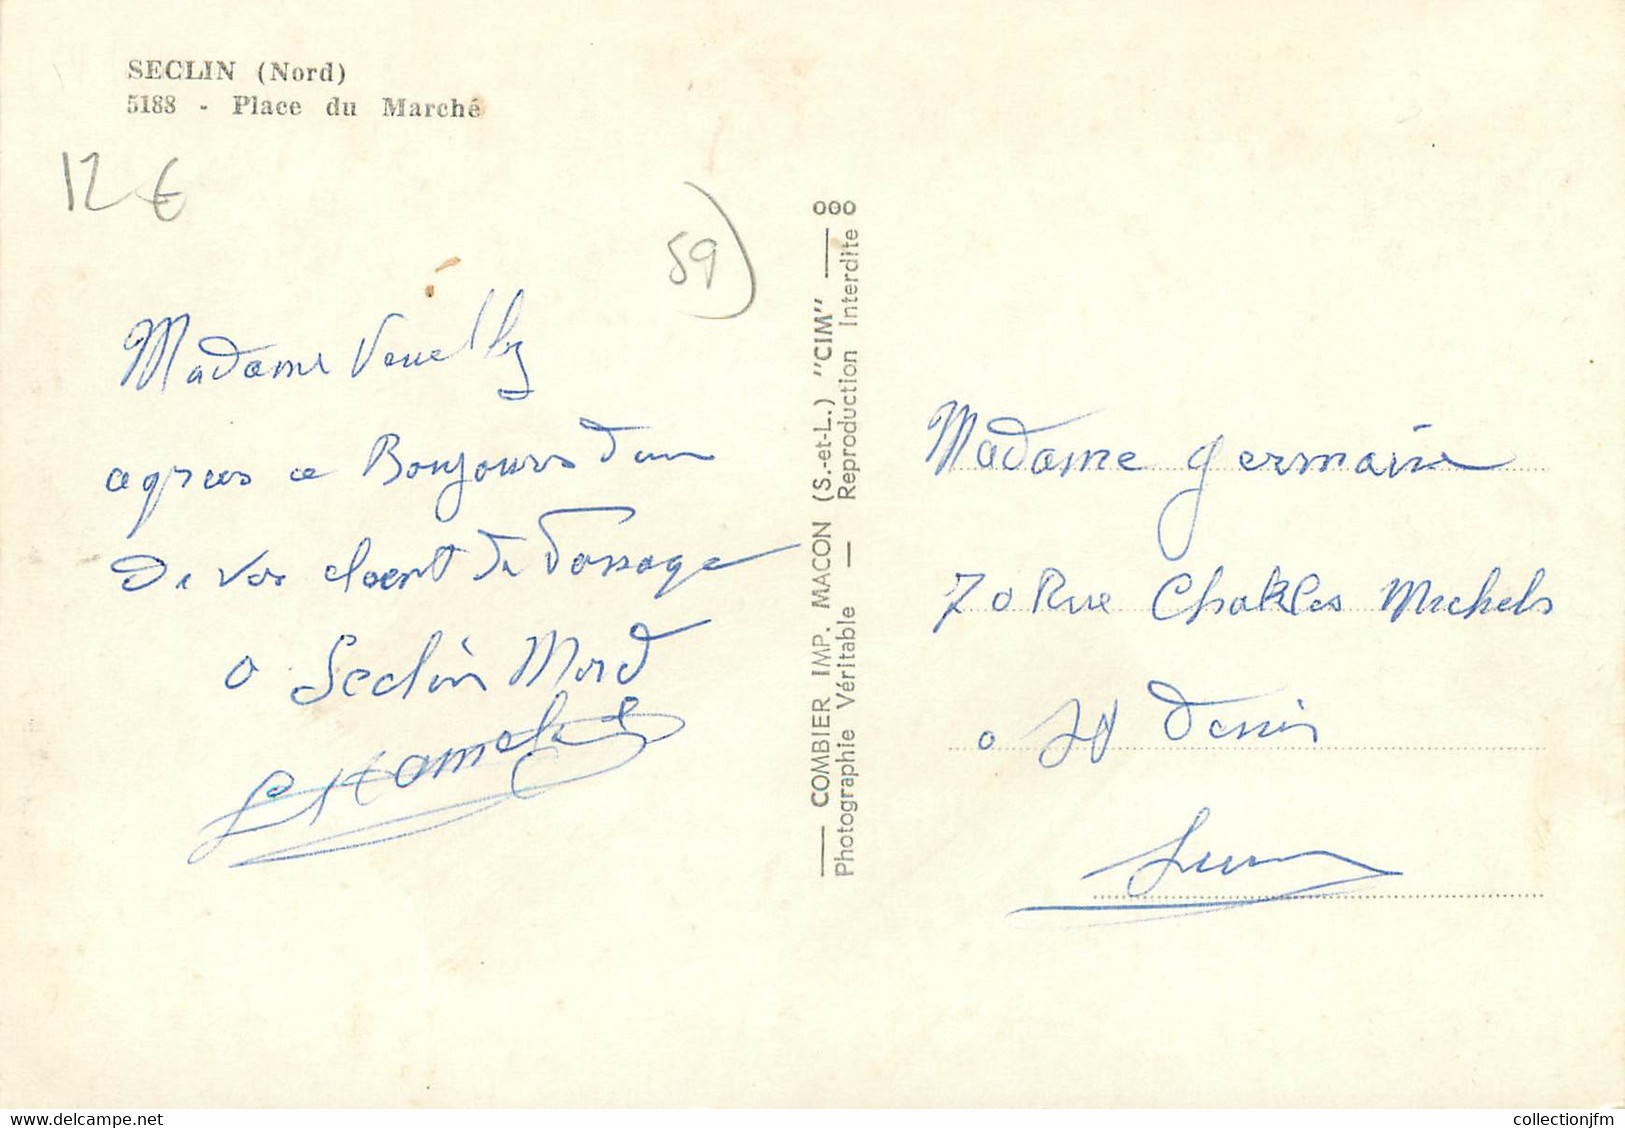 SECLIN (Nord)
5188 - Place du Marché
12 €
59)
Madame
agrees ce Bonjours d'un
De vos client De Passage
a Seclin Nord
COMBIER IMP. MACON (S.-et-L.) "CIM" 000
Photographie Véritable — Reproduction Interdite
Madame Germaine
70 Rue Charles Michels
a St Denis
Seine
collectionjfm